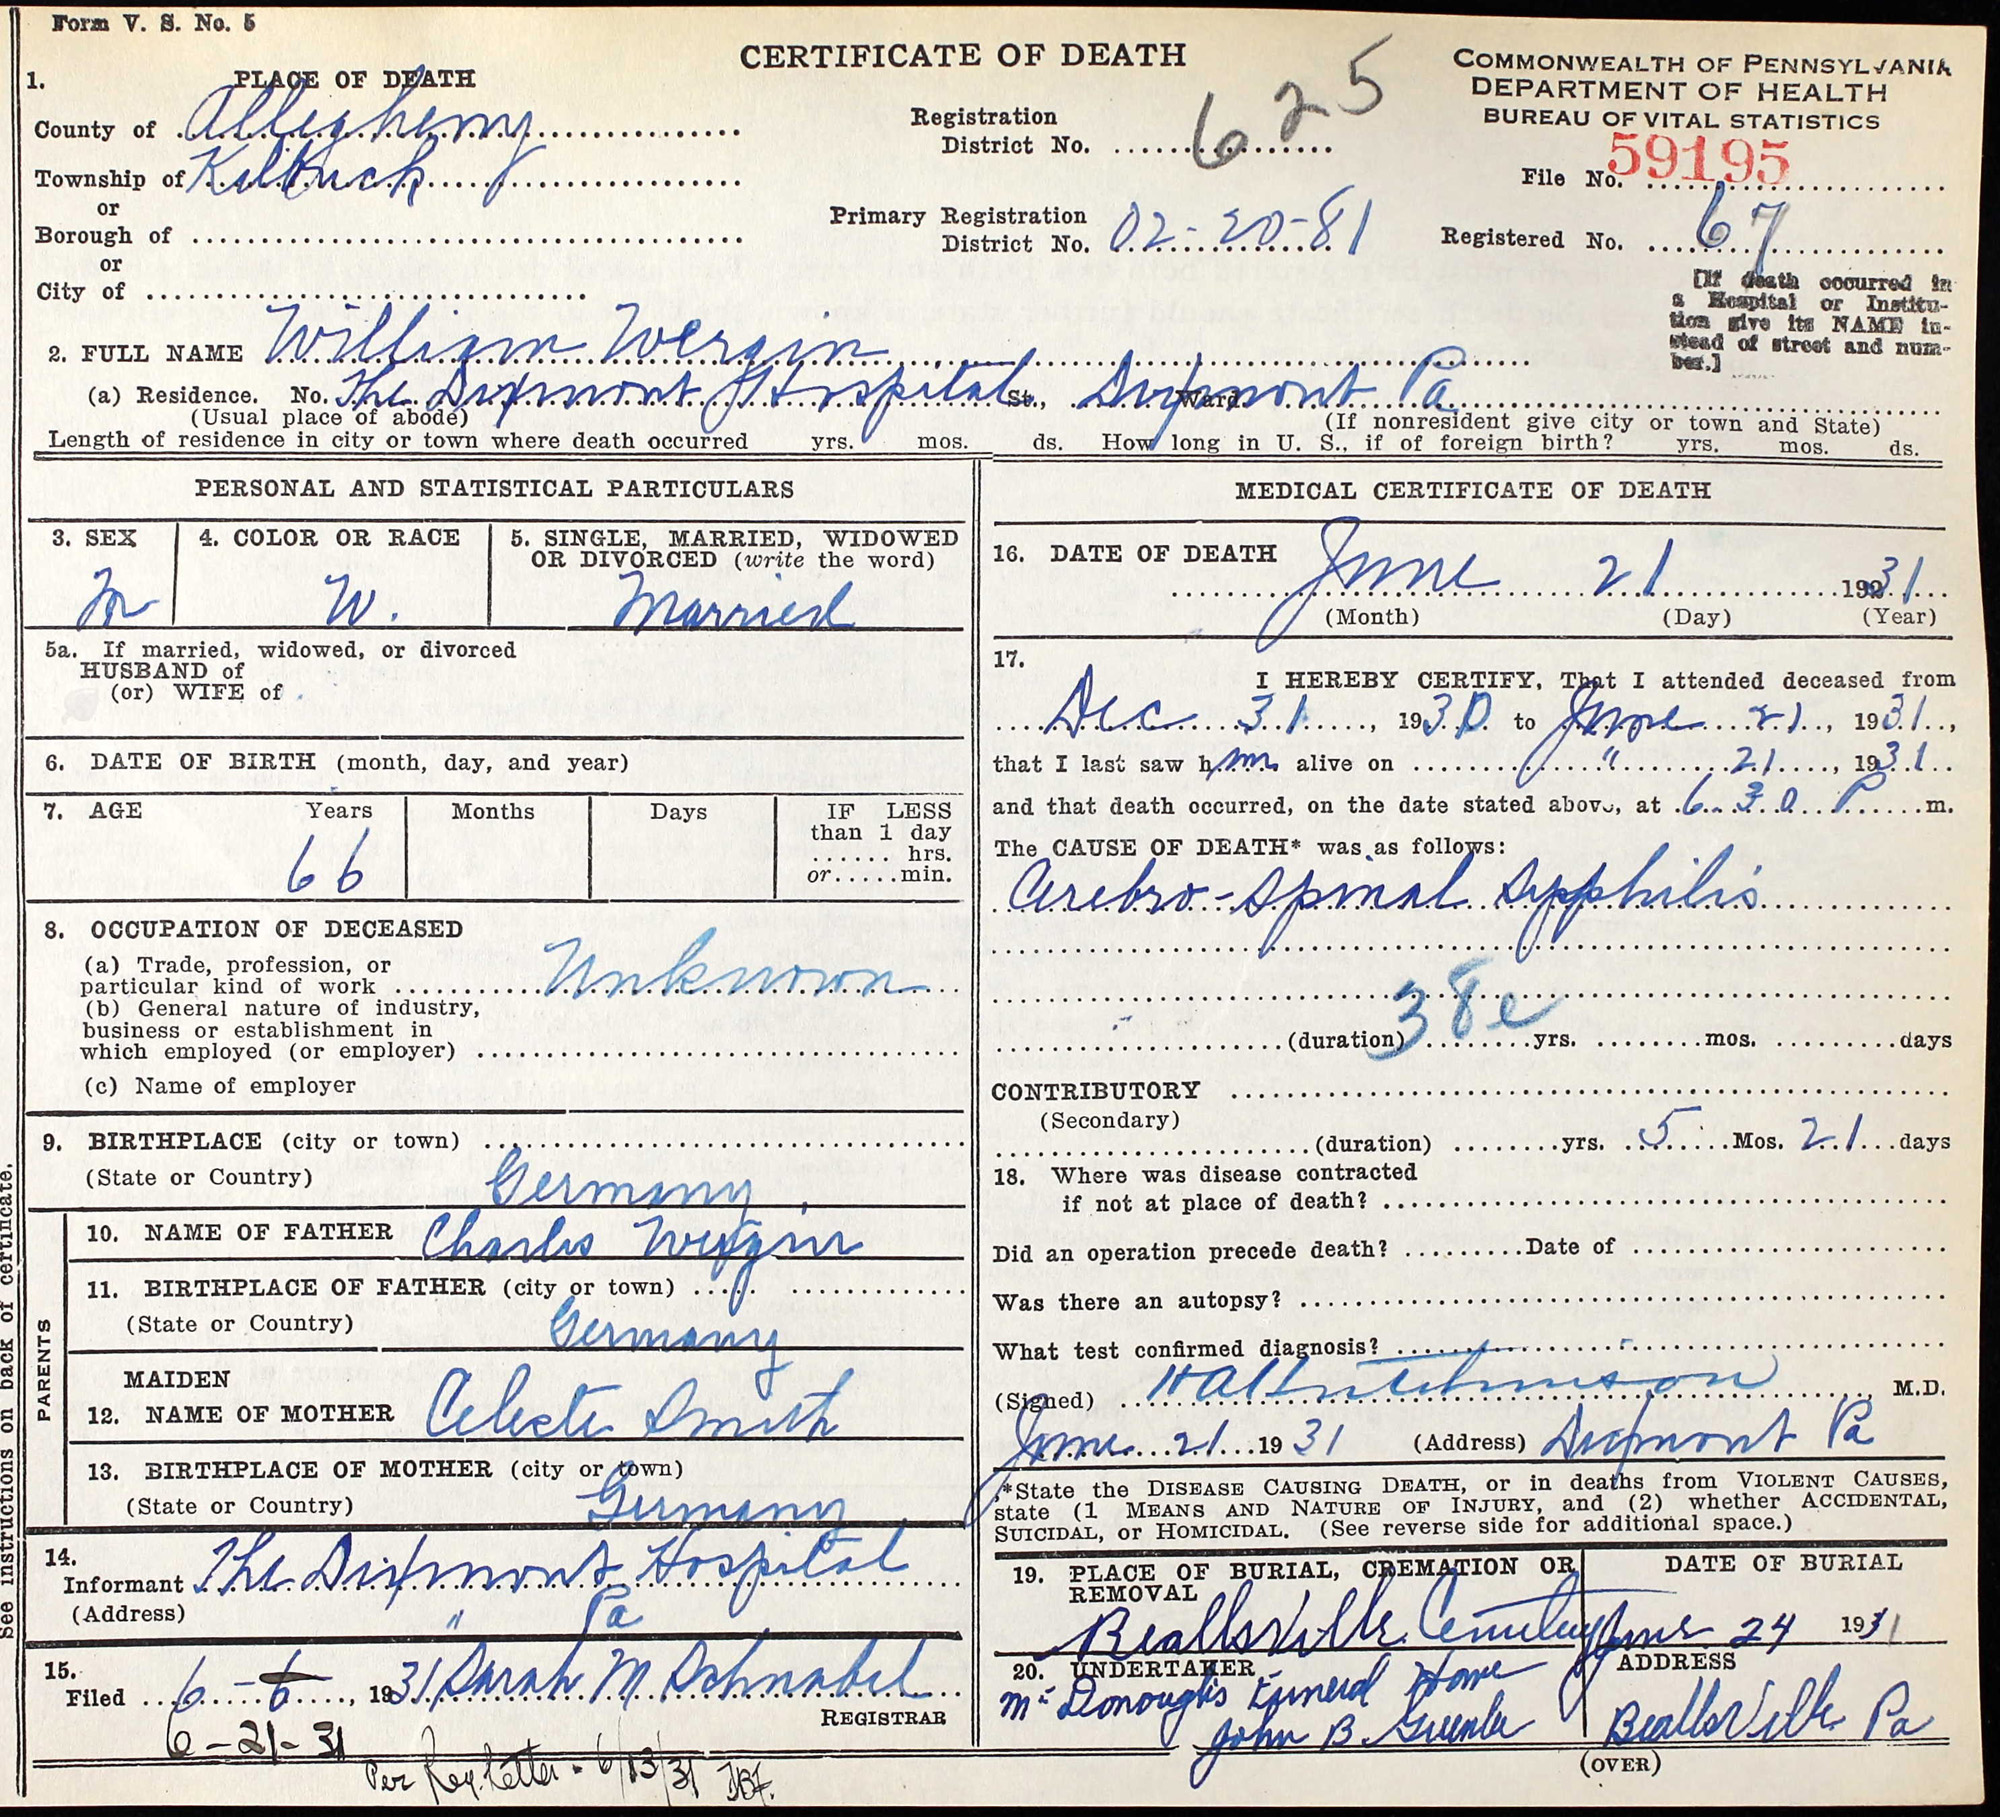 Form V. S. No. 5
CERTIFICATE OF DEATH
COMMONWEALTH OF PENNSYLVANIA
DEPARTMENT OF HEALTH
BUREAU OF VITAL STATISTICS
1. PLACE OF DEATH
County of Allegheny
Township of Kilbuck
or
Borough of
or
City of
Registration District No. 625
Primary Registration District No. 02-20-81
File No. 59195
Registered No. 67
[If death occurred in
a Hospital or Institu-
tion give its NAME in-
stead of street and num-
ber.]
2. FULL NAME William Wergin
(a) Residence. No. The Dixmont Hospital St., Dixmont Pa Ward.
(Usual place of abode) (If nonresident give city or town and State)
Length of residence in city or town where death occurred yrs. mos. ds. How long in U. S., if of foreign birth? yrs. mos. ds.
PERSONAL AND STATISTICAL PARTICULARS
3. SEX
M
4. COLOR OR RACE
W.
5. SINGLE, MARRIED, WIDOWED
OR DIVORCED (write the word)
Married
5a. If married, widowed, or divorced
HUSBAND of
(or) WIFE of
6. DATE OF BIRTH (month, day, and year)
7. AGE Years Months Days IF LESS
than 1 day
hrs.
or.....min.
66
8. OCCUPATION OF DECEASED
(a) Trade, profession, or
particular kind of work Unknown
(b) General nature of industry,
business or establishment in
which employed (or employer)
(c) Name of employer
9. BIRTHPLACE (city or town)
(State or Country) Germany
PARENTS
10. NAME OF FATHER Charles Wergin
11. BIRTHPLACE OF FATHER (city or town)
(State or Country) Germany
MAIDEN
12. NAME OF MOTHER Celeste Smith
13. BIRTHPLACE OF MOTHER (city or town)
(State or Country) Germany
14.
Informant The Dixmont Hospital
(Address) " Pa
15.
Filed 6-6, 1931 Sarah M Schnabel
REGISTRAR
6-21-31
Per Reg. Letter - 6/13/31
See instructions on back of certificate.
MEDICAL CERTIFICATE OF DEATH
16. DATE OF DEATH
June 21 1931
(Month) (Day) (Year)
17.
I HEREBY CERTIFY, That I attended deceased from
Dec 31, 1930 to June 21, 1931,
that I last saw him alive on " 21, 1931
and that death occurred, on the date stated above, at 6 30 P m.
The CAUSE OF DEATH* was as follows:
Cerebro-Spinal Syphilis
38e
(duration) yrs. mos. days
CONTRIBUTORY
(Secondary)
(duration) yrs. 5 Mos. 21 days
18. Where was disease contracted
if not at place of death?
Did an operation precede death? Date of
Was there an autopsy?
What test confirmed diagnosis?
(Signed) H A Hutchinson M.D.
June 21 1931 (Address) Dixmont Pa
*State the DISEASE CAUSING DEATH, or in deaths from VIOLENT CAUSES,
state (1 MEANS AND NATURE OF INJURY, and (2) whether ACCIDENTAL,
SUICIDAL, or HOMICIDAL. (See reverse side for additional space.)
19. PLACE OF BURIAL, CREMATION OR
REMOVAL
Beallsville Cemetery
DATE OF BURIAL
June 24 1931
20. UNDERTAKER
McDonough's Funeral Home
John B.
ADDRESS
Beallsville Pa
(OVER)